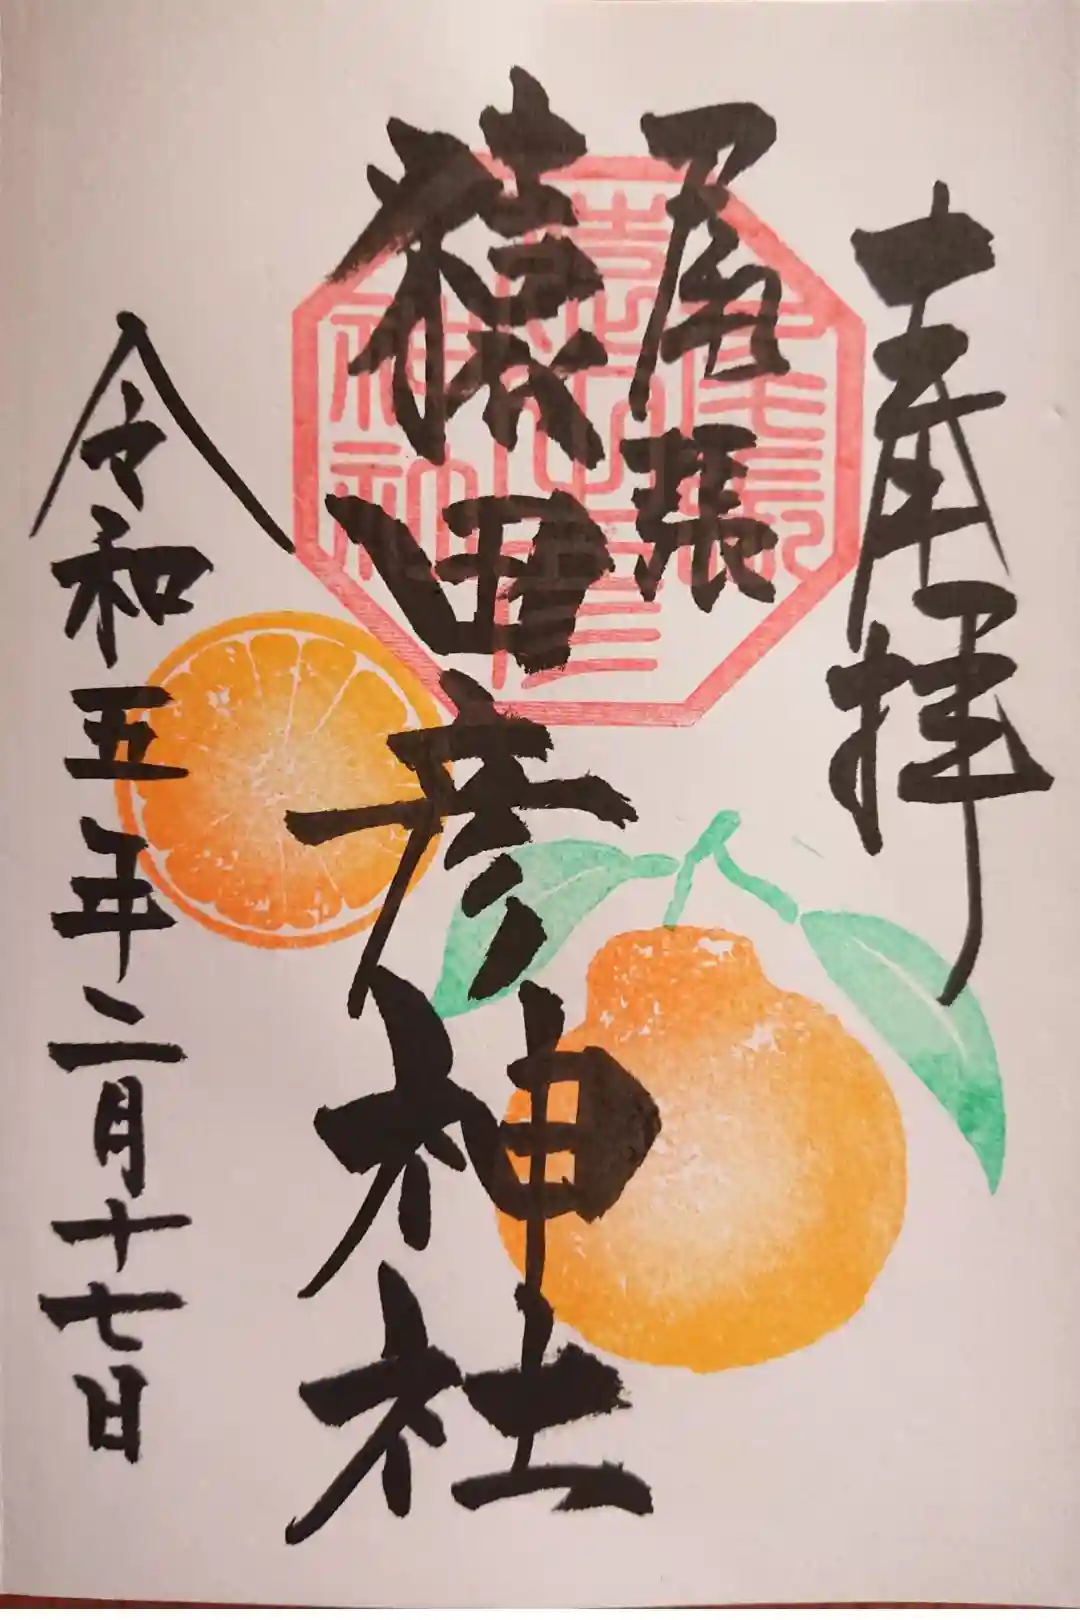 奉拝
尾張
猿田彦神社
令和五年二月十七日